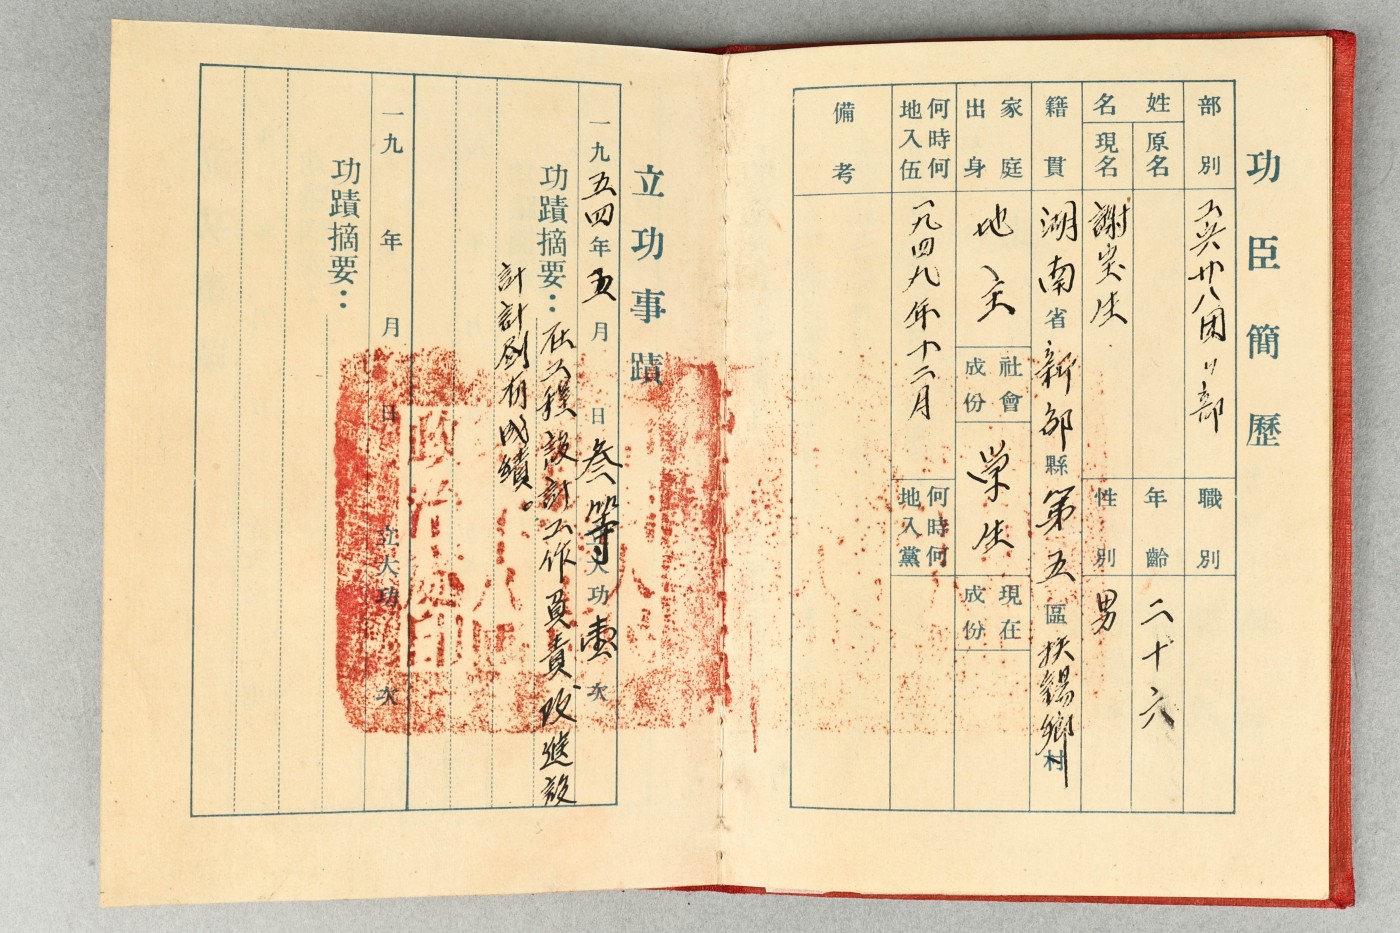 功臣簡歷
部別 工兵廿八团 部 職別
姓名 原名 年齡 二十六
現名 謝实生 性別 男
籍貫 湖南省新邵縣第五區扶錫鄉村
家庭出身 地主 社會成份 学生 現在成份
何時何地入伍 一九四九年十二月 何時何地入黨
備考
立功事蹟
一九五四年五月 日叁等大功壹次
功蹟摘要：在工程設計工作負責改進設
計計劃有成績。
一九 年 月 日 立大功 次
功蹟摘要：
政治處印